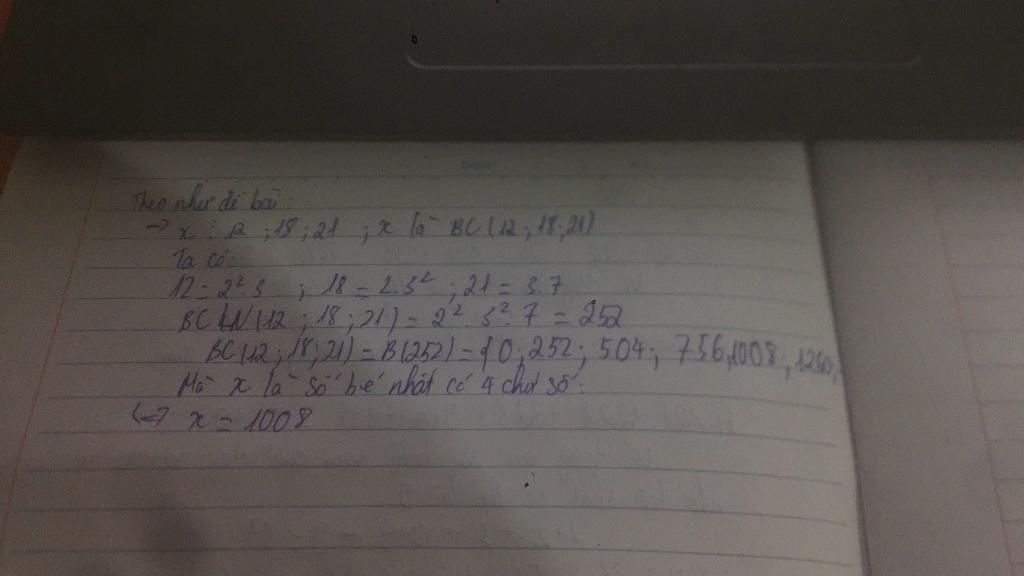 Theo như đề bài:
→ x ⋮ 12 ; 18 ; 21 ; x là BC(12 ; 18 ; 21)
Ta có:
12 = 2².3 ; 18 = 2.3² ; 21 = 3.7
BCLN(12 ; 18 ; 21) = 2².3².7 = 252
BC(12 ; 18 ; 21) = B(252) = {0 ; 252 ; 504 ; 756 ; 1008 ; 1260 ;
Mà x là số bé nhất có 4 chữ số:
(=> x = 1008